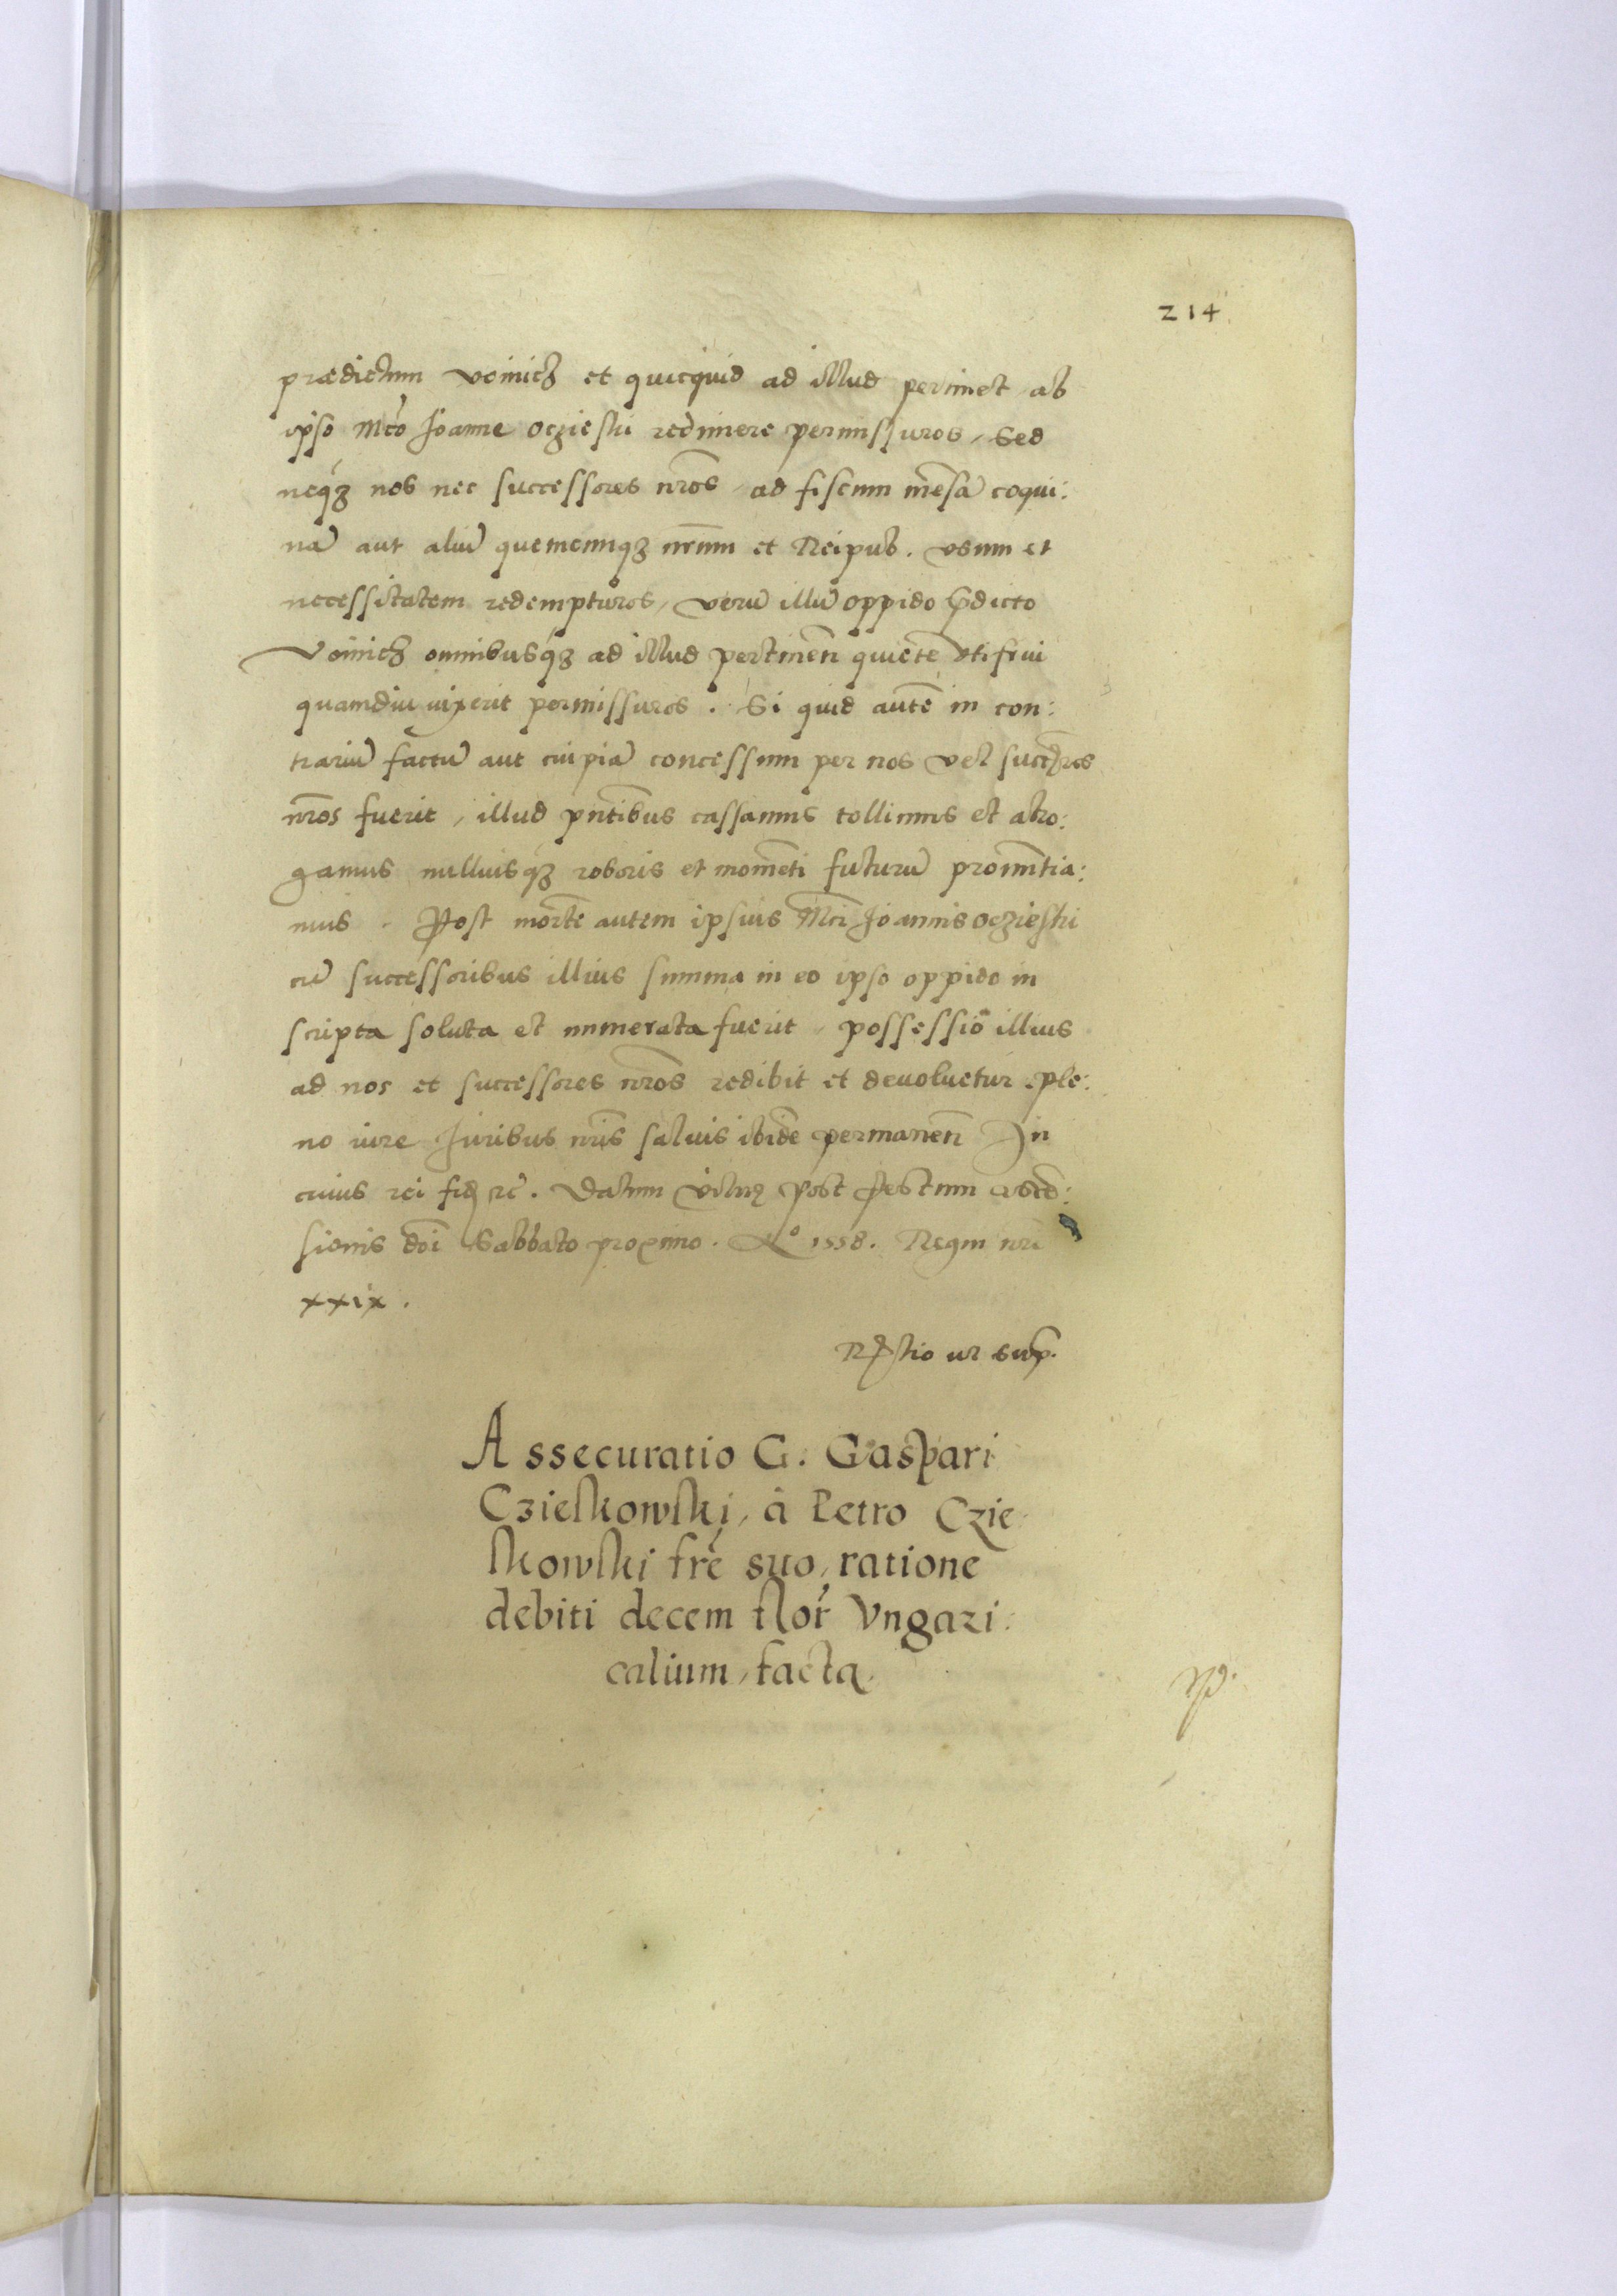 214
prædictum Voinicz et quicquid ad illud pertinet ab
ipso Mco Joanne oczieski redimere permissuros, Sed
neqz nos nec successores nros ad fiscum mēsā coqui:
nā aut aliū quemcunqz nrum et Reipub. vsum et
necessitatem redempturos, verū illū oppido pdicto
Voinicz omnibusqz ad illud pertinen quiete vti frui
quamdiu vixerit permissuros. Si quid autē in con:
trariū factū aut cuipiā concessum per nos vel succres
nros fuerit, illud pntibus cassamus tollimus et abro:
gamus nulliusqz roboris et momēti futurū pronuntia:
mus. Post mortē autem ipsius Mci Joannis oczieski
cū successoribus illius summa in eo ipso oppido in
scripta soluta et numerata fuerit, possessio illius
ad nos et successores nros redibit et deuoluetur ple:
no iure Juribus nris saluis ibidē permanen In
cuius rei fid rc. Datum post festum ascē:
sionis doi Sabbato proximo. Ao 1558. Regni nri
xxix.
ut sup.
Assecuratio G. Gaspari
Czieskowski, à Petro Czie
skowski fre suo, ratione
debiti decem flor Vngari:
calium, facta.